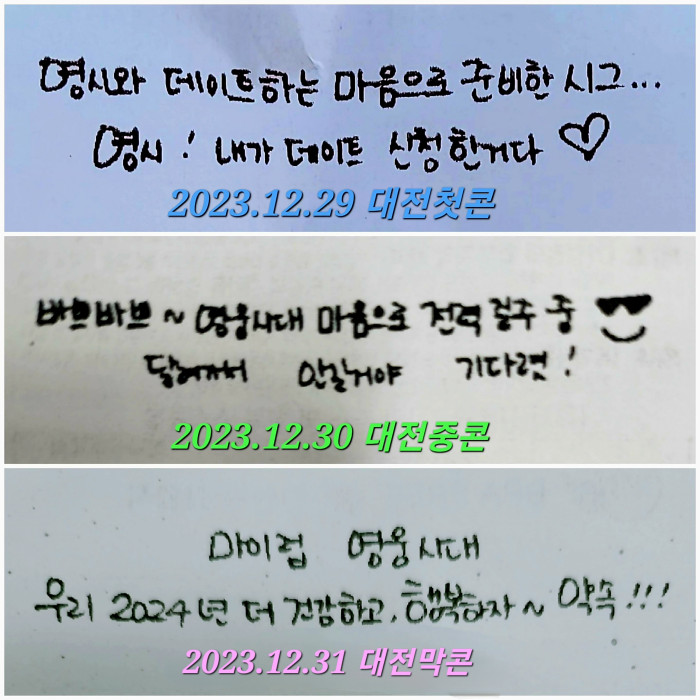 영시와 데이트하는 마음으로 준비한 시그...
영시! 내가 데이트 신청한거다 ♡
2023.12.29 대전첫콘
바쁘바쁘~ 영웅시대 마음으로 전력 질주 중
달려가서 안길거야 기다렷!
2023.12.30 대전중콘
마이럽 영웅시대
우리 2024년 더 건강하고, 행복하자~ 약속!!!
2023.12.31 대전막콘